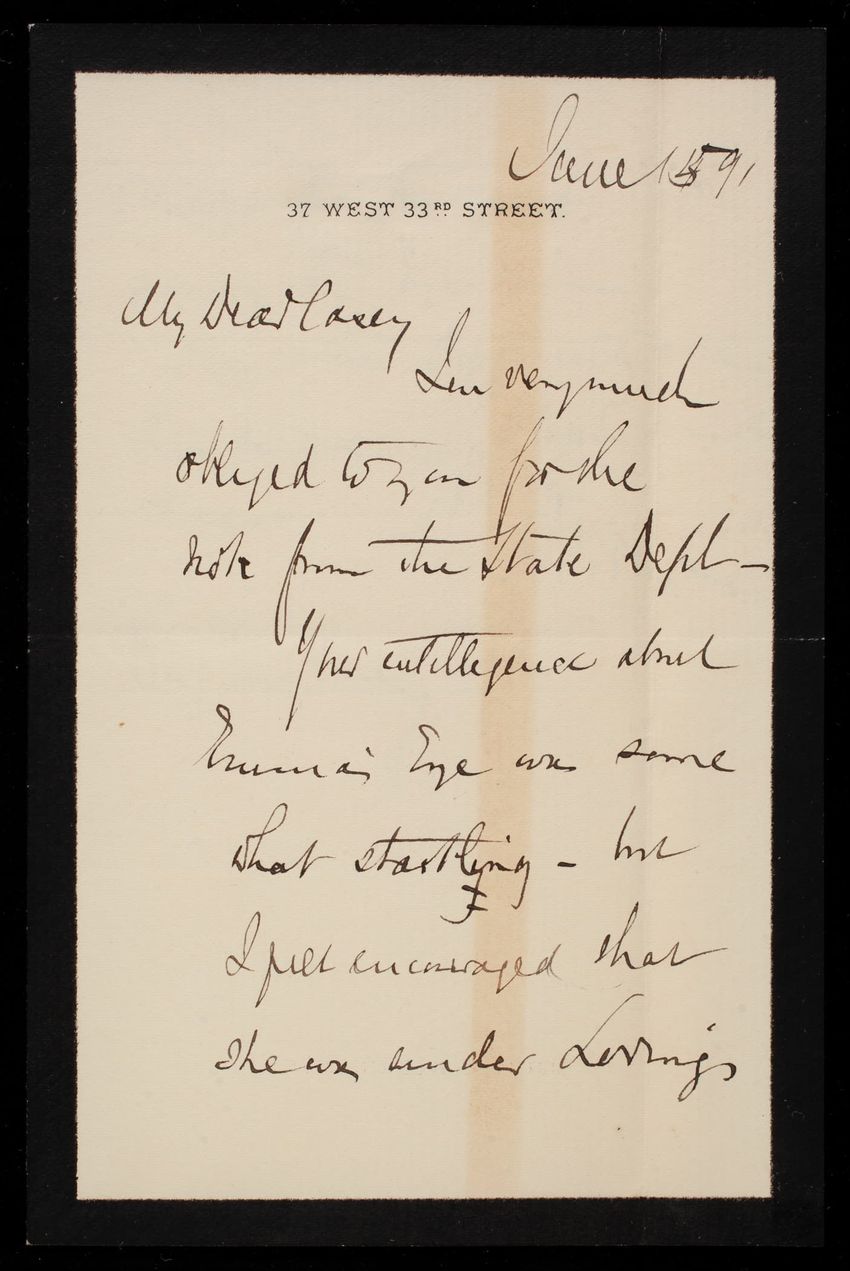 June 15 91
37 WEST 33RD STREET.
My Dear Casey
I am very much
obliged to you for the
note from the State Dept —
Your intelligence about
Emma's Eye was some
what startling – but
I felt encouraged that
she was under Loring's